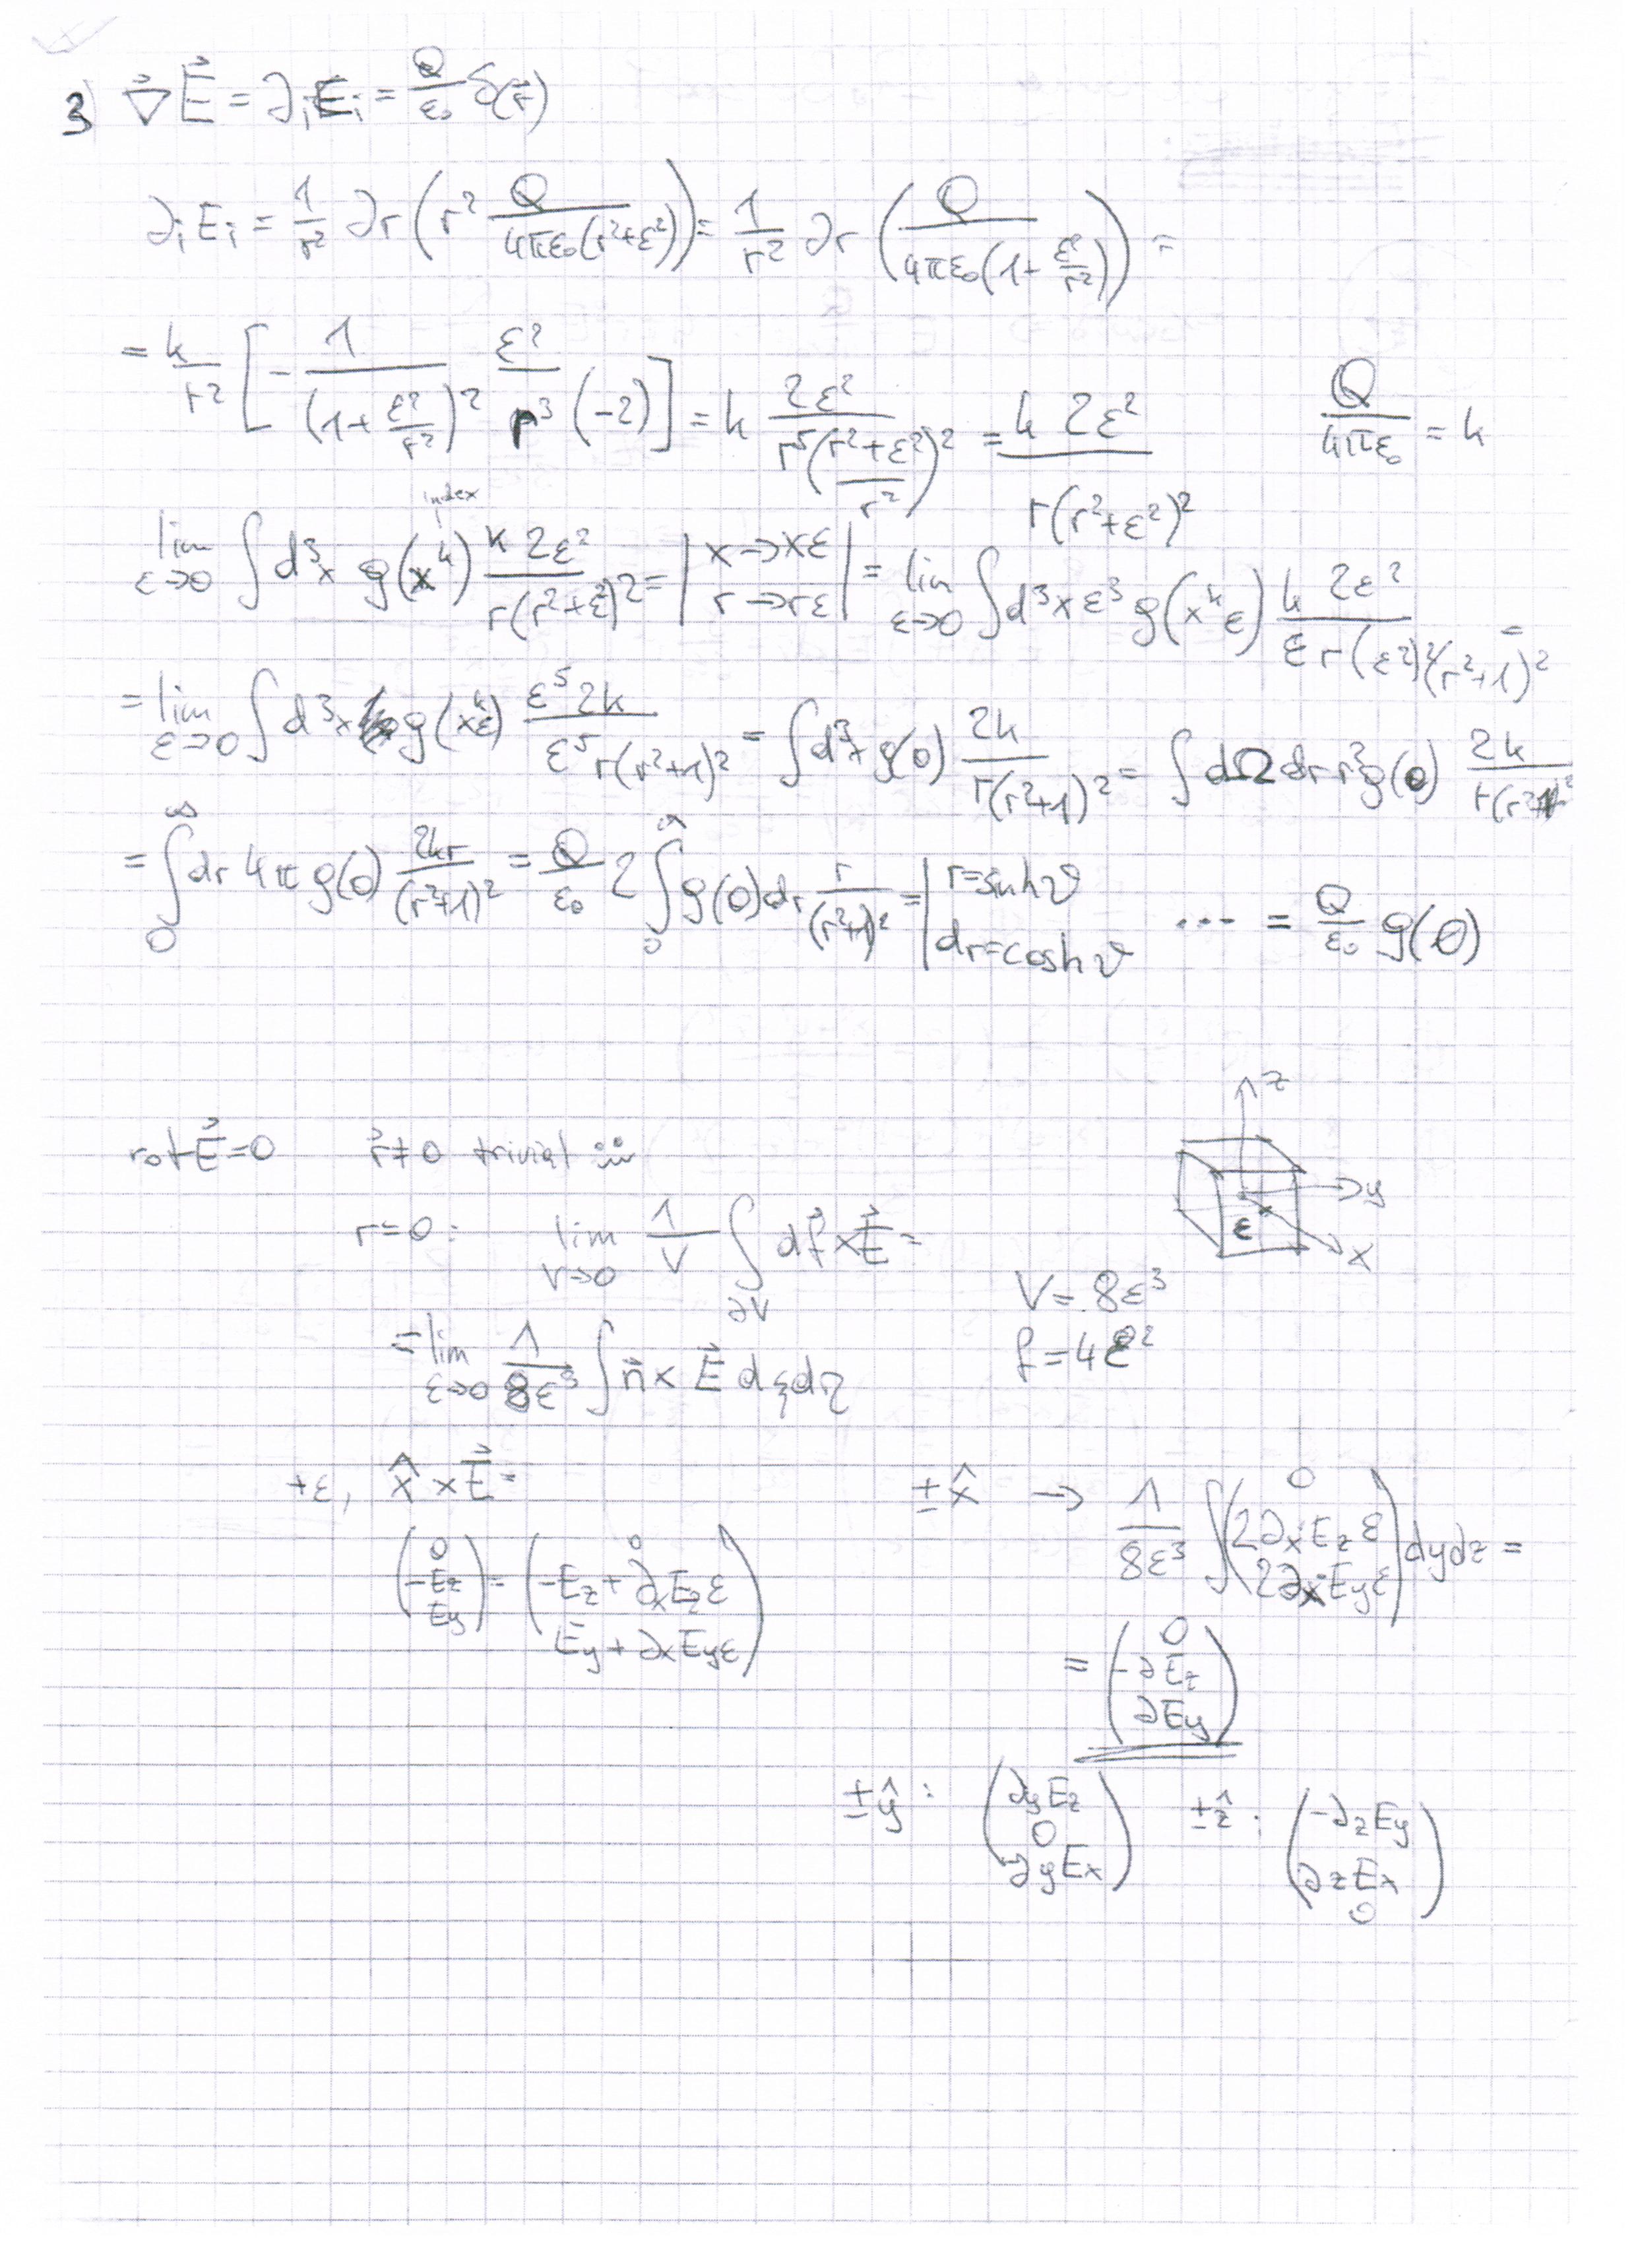 3) ∇⃗E⃗ = ∂ᵢEᵢ = Q/ε₀ δ(r⃗)
∂ᵢEᵢ = 1/r² ∂r (r² Q/(4πε₀(r²+ε²))) = 1/r² ∂r (Q/(4πε₀(1+ε²/r²))) =
= k/r² [ - 1/(1+ε²/r²)² ε²/r³ (-2) ] = k 2ε²/(r⁵((r²+ε²)/r²)²) = k 2ε²/(r(r²+ε²)²) Q/(4πε₀) = k
index
lim ε→0 ∫d³x g(xᵏ) k 2ε²/(r(r²+ε²)²) = | x→xε r→rε | = lim ε→0 ∫d³x ε³ g(xᵏε) k 2ε²/(ε r(ε²)²(r²+1)²) =
= lim ε→0 ∫d³x g(xᵏε) ε⁵2k/(ε⁵ r(r²+1)²) = ∫d³x g(0) 2k/(r(r²+1)²) = ∫dΩ dr r² g(0) 2k/(r(r²+1)²)
= ∫₀^∞ dr 4π g(0) 2kr/(r²+1)² = Q/ε₀ 2 ∫₀^∞ g(0) dr r/(r²+1)² = | r=sinhϑ dr=coshϑ ... = Q/ε₀ g(0)
z
y
ε
x
rot E⃗ = 0 r⃗≠0 trivial
r=0: lim V→0 1/V ∫∂V df⃗ × E⃗ =
V = 8ε³
f = 4ε²
= lim ε→0 1/(8ε³) ∫ n⃗ × E⃗ dξdη
+ε, x̂ × E⃗ = ±x̂ → 1/(8ε³) ∫ (0 2∂xEzε 2∂xEyε) dydz =
(0 -Ez Ey) = (0 -Ez+∂xEzε Ey+∂xEyε)
= (0 -∂Ez ∂Ey)
±ŷ: (∂yEz 0 -∂yEx) ±ẑ: (-∂zEy ∂zEx 0)